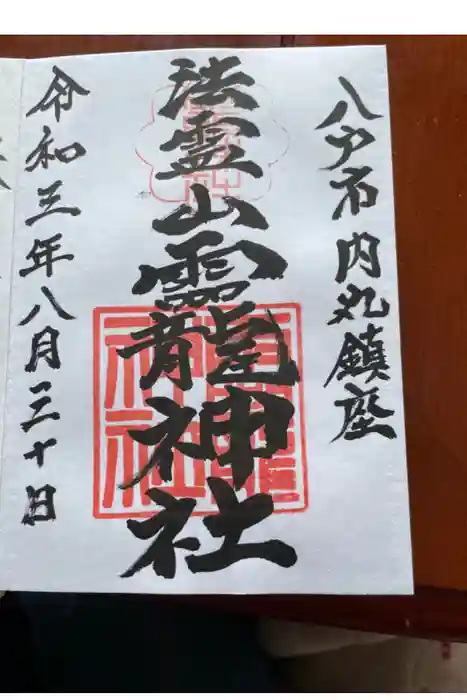 八戸市内丸鎮座
法霊山龗神社
令和三年八月三十日